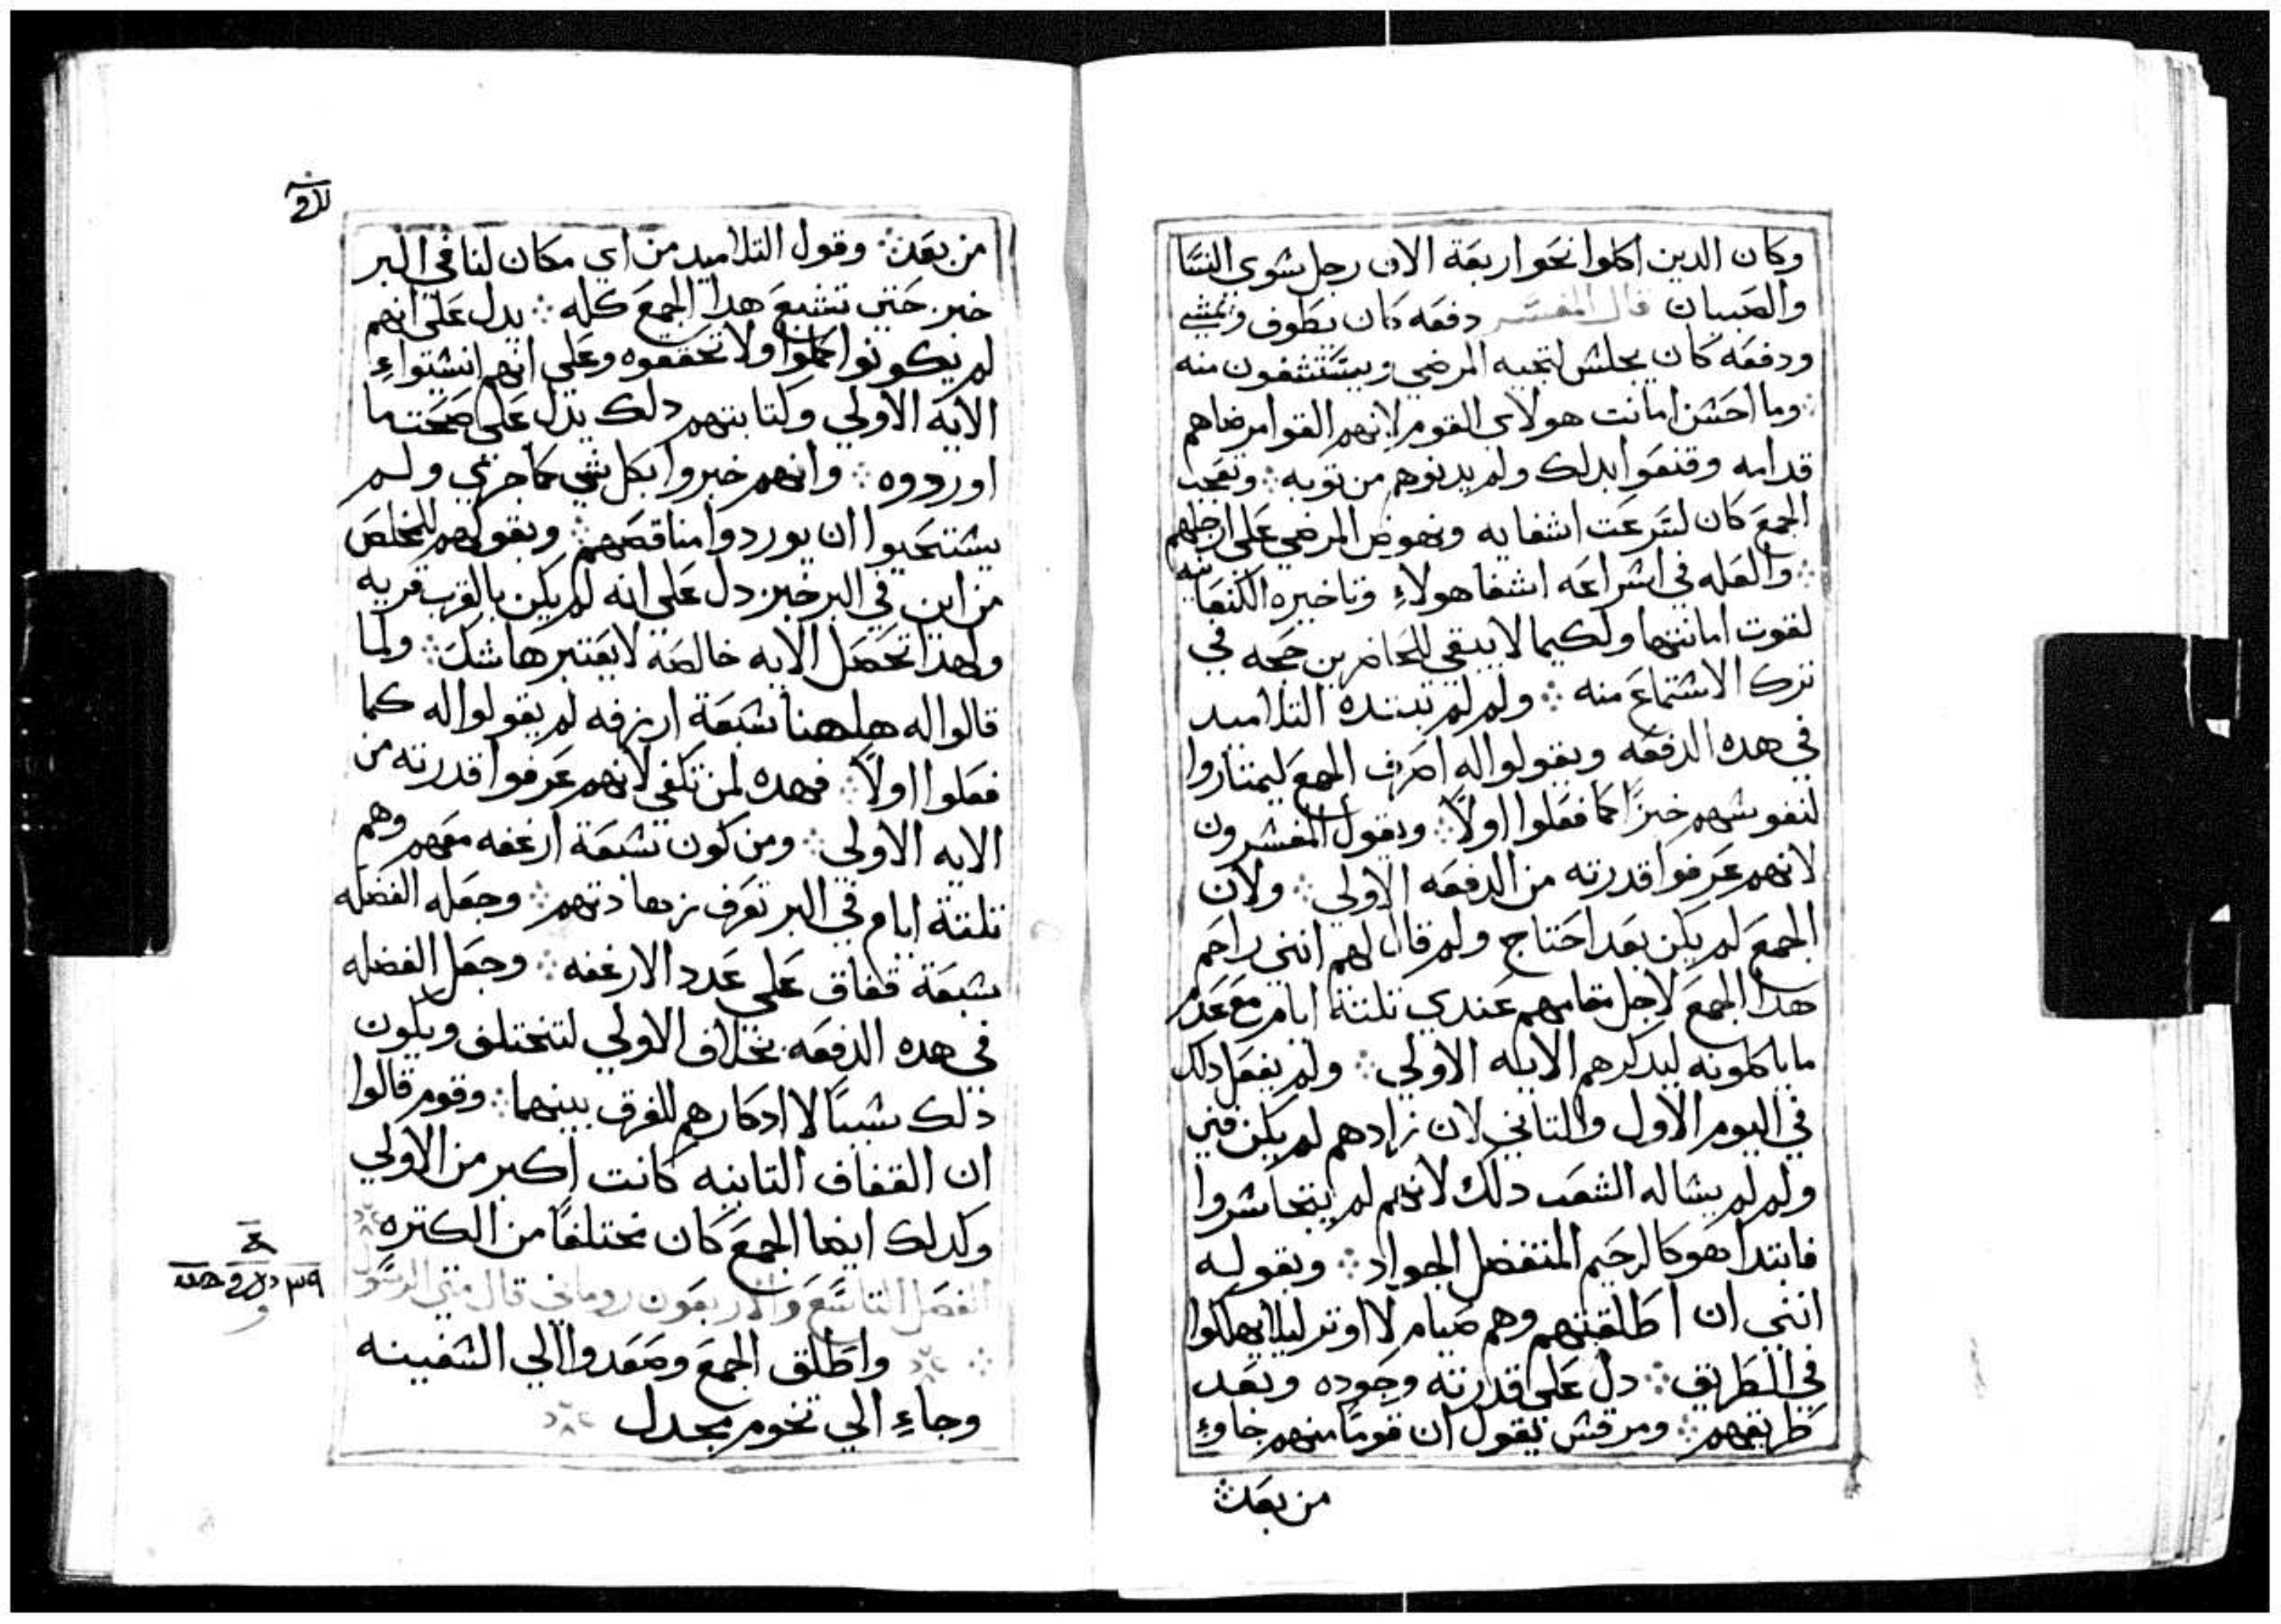 وكان الدين اكلوا نحو اربعة الاف رجل سوي النسا
والصبيان قال المفسر دفعه كان يطوف ويمشي
ودفعه كان يجلس لتجيه المرضي ويستشفون منه
وما احسن امانت هولاى القوم لانهم القوا مرضاهم
قدامه وقنعوا بدلك ولم يدنوهم من توبه ⁘ وتعجب
الجمع كان لسرعت اشفايه ونهوض المرضي علي ارجلهم
⁘ والعله في اسراعه اشفا هولاءِ وتاخيره الكنعانيه
لقوت امانتها ولكيما لا يبقي للحاضرين حجه في
ترك الاستماع منه ⁘ ولم لم تبتده التلاميد
في هده الدفعه ويقولوا له اصرف الجمع ليمتاروا
لنفوسهم خبزًا كما فعلوا اولاً ⁘ ويقول المفسرون
لانهم عرفوا قدرته من الدفعه الاولي ⁘ ولان
الجمع لم يكن بعد احتاج ولم قال لهم انني راحم
هدا الجمع لاجل مقامهم عندي تلتة ايام مع عدم
ما ياكلونه ليدكرهم الايه الاولي ⁘ ولم يفعل دلك
في اليوم الاول والتاني لان زادهم لم يكن فني
ولم لم يساله الشعب دلك لانهم لم يتجاسروا
فابتدا هو كالرحيم المتفضل الجواد ⁘ وبقوله
انني ان اطلقتهم وهم صيام لا اوتر ليلا يهلكوا
في الطريق ⁘ دل علي قدرته وجوده وبعد
طريقهم ⁘ ومرقس يقول ان قومًا منهم جاوءِ
من بعد ⁘
من بعد ⁘ وقول التلاميد من اي مكان لنا في البر
خبز حتي تشبع هدا الجمع كله ⁘ يدل علي انهم
لم يكونوا كملوا ولا تحققوه وعلي انهم انسيواءِ
الايه الاولي وكتابتهم دلك يدل علي صحت ما
اوردوه ⁘ وانهم خبروا بكل شي كما جري ولم
يستحيوا ان يوردوا مناقصهم ⁘ وبقولهم للمخلص
من اين في البر خبز دل علي انه لم يكن بالقرب قريه
ولهدا تحصل الايه خالصه لا يعتبرها شك ⁘ ولما
قالوا له هاهنا سبعة ارغفه لم يقولوا له كما
فعلوا اولاً ⁘ فهده لمن تكفي لانهم عرفوا قدرته من
الايه الاولي ⁘ ومن كون سبعة ارغفه معهم وهم
تلتة ايام في البر تعرف زهادتهم ⁘ وجعله الفضله
سبعة قفاف علي عدد الارغفه ⁘ وجعل الفضله
في هده الدفعه بخلاف الاولي لتختلف ويكون
دلك سببًا لا ادكارهم للفرق بينهما ⁘ وقوم قالوا
ان القفاف التانيه كانت اكبر من الاولي
وكدلك ايضا الجمع كان مختلفًا من الكتره
الفصل التاسع والاربعون روماني قال متي الرسول
⁘ واطلق الجمع وصعدوا الي السفينه
وجاءِ الي تخوم مجدل
٣٩